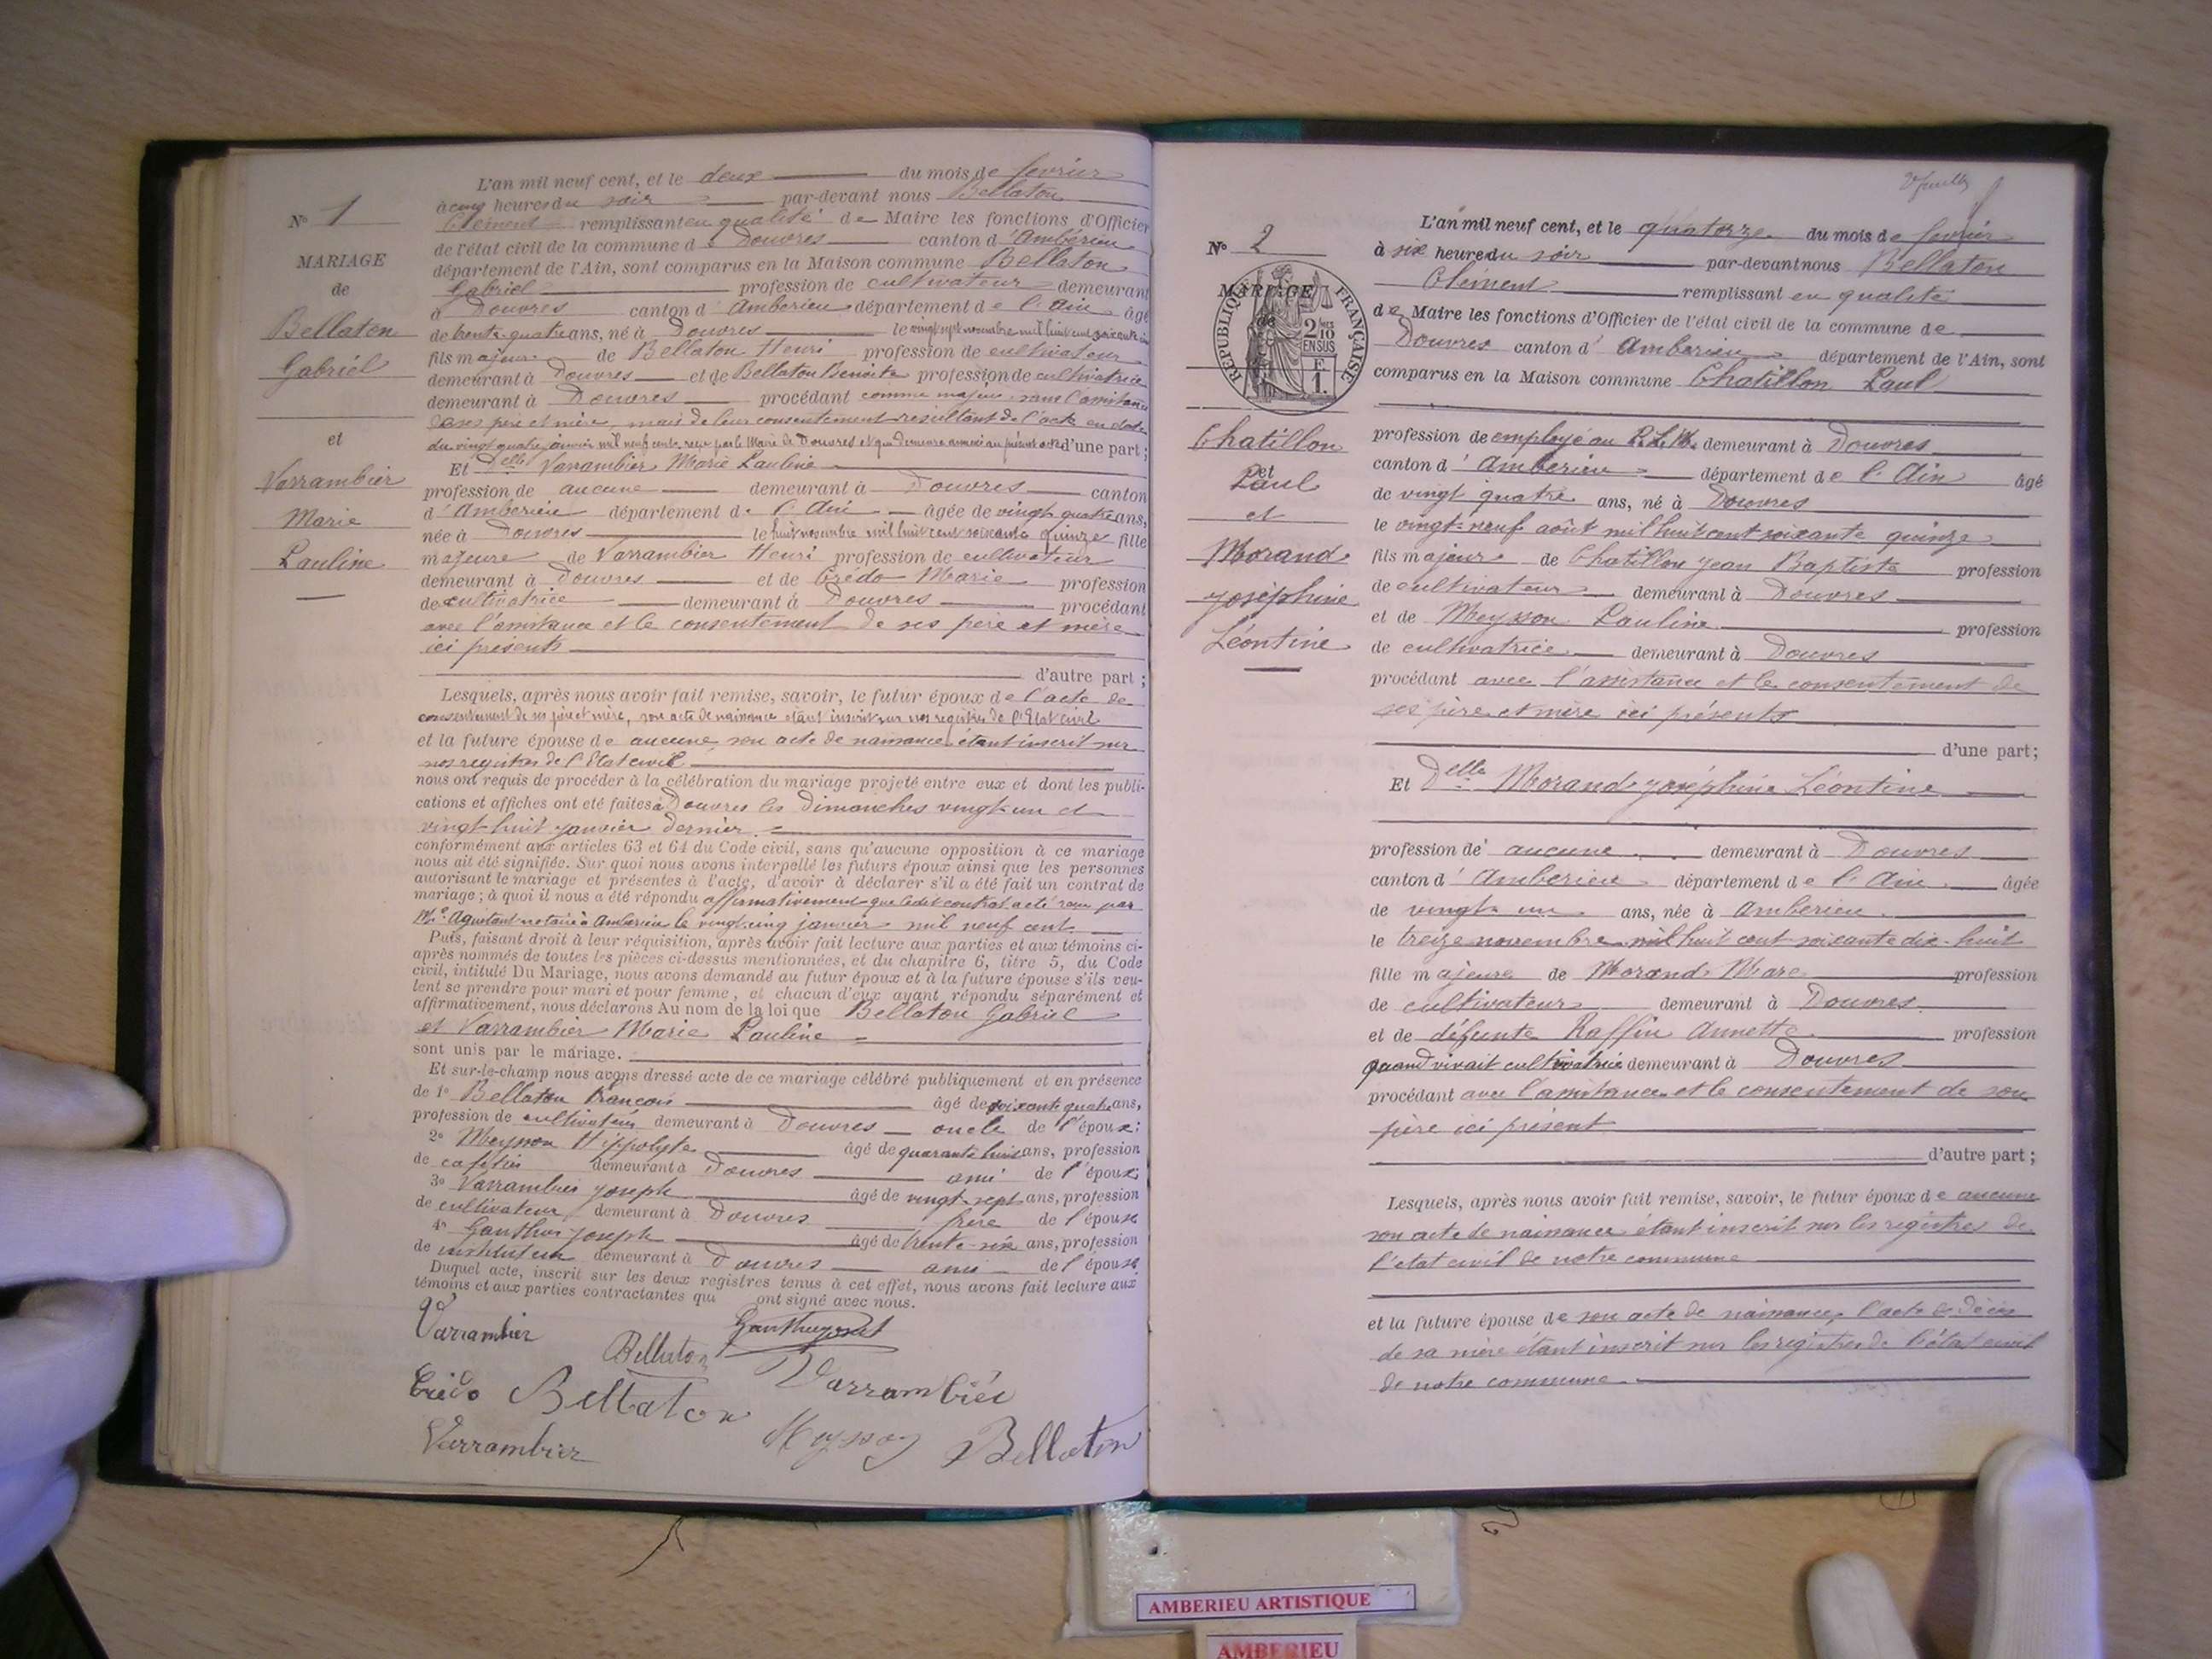 N° 1
MARIAGE
de
Bellaton
Gabriel
et
Varrambier
Marie
Pauline
L'an mil neuf cent, et le deux du mois de février
à cinq heures du soir par-devant nous Bellaton
Clément remplissant en qualité de Maire les fonctions d'Officier
de l'état civil de la commune de Douvres canton d'Ambérieu
département de l'Ain, sont comparus en la Maison commune Bellaton
Gabriel profession de cultivateur demeurant
à Douvres canton d'Amberieu département de l'Ain âgé
de trente quatre ans, né à Douvres le vingt sept novembre mil huit cent soixante cinq
fils majeur de Bellaton Henri profession de cultivateur
demeurant à Douvres et de Bellaton Benoite profession de cultivatrice
demeurant à Douvres procédant comme majeur sans l'assistance
de ses père et mère, mais de leur consentement résultant de l'acte en date
du vingt quatre janvier mil neuf cent, reçu par le Maire de Douvres et qui demeure annexé au présent acte d'une part ;
Et Delle Varrambier Marie Pauline
profession de aucune demeurant à Douvres canton
d'Amberieu département de l'Ain âgée de vingt quatre ans,
née à Douvres le huit novembre mil huit cent soixante quinze fille
majeure de Varrambier Henri profession de cultivateur
demeurant à Douvres et de Crédo Marie profession
de cultivatrice demeurant à Douvres procédant
avec l'assistance et le consentement de ses père et mère
ici présents
d'autre part ;
Lesquels, après nous avoir fait remise, savoir, le futur époux de l'acte de
consentement de ses père et mère, son acte de naissance étant inscrit sur nos registres de l'Etat civil
et la future épouse de aucune, son acte de naissance étant inscrit sur
nos registres de l'Etat civil
nous ont requis de procéder à la célébration du mariage projeté entre eux et dont les publi-
cations et affiches ont été faites à Douvres les dimanches vingt-un et
vingt-huit janvier dernier.
conformément aux articles 63 et 64 du Code civil, sans qu'aucune opposition à ce mariage
nous ait été signifiée. Sur quoi nous avons interpellé les futurs époux ainsi que les personnes
autorisant le mariage et présentes à l'acte, d'avoir à déclarer s'il a été fait un contrat de
mariage ; à quoi il nous a été répondu affirmativement que ledit contrat a été reçu par
Me notaire à Amberieu le vingt-cinq janvier mil neuf cent
Puis, faisant droit à leur réquisition, après avoir fait lecture aux parties et aux témoins ci-
après nommés de toutes les pièces ci-dessus mentionnées, et du chapitre 6, titre 5, du Code
civil, intitulé Du Mariage, nous avons demandé au futur époux et à la future épouse s'ils veu-
lent se prendre pour mari et pour femme, et chacun d'eux ayant répondu séparément et
affirmativement, nous déclarons Au nom de la loi que Bellaton Gabriel
et Varrambier Marie Pauline
sont unis par le mariage.
Et sur-le-champ nous avons dressé acte de ce mariage célébré publiquement et en présence
de 1° Bellaton François âgé de soixante quatre ans,
profession de cultivateur demeurant à Douvres oncle de l'époux ;
2° Meysson Hippolyte âgé de quarante huit ans, profession
de cafetier demeurant à Douvres ami de l'époux
3° Varrambier Joseph âgé de vingt sept ans, profession
de cultivateur demeurant à Douvres frère de l'épouse
4° Joseph âgé de trente-six ans, profession
de instituteur demeurant à Douvres ami de l'épouse
Duquel acte, inscrit sur les deux registres tenus à cet effet, nous avons fait lecture aux
témoins et aux parties contractantes qui ont signé avec nous.
Varrambier
Bellaton
Crédo Bellaton Varrambier
Varrambier Meysson Bellaton
N° 2
MARIAGE
de
RÉPUBLIQUE FRANÇAISE
2/10 EN SUS
F. 1.
Chatillon
et
Paul
et
Morand
Joséphine
Léontine
L'an mil neuf cent, et le quatorze du mois de février
à six heure du soir par-devant nous Bellaton
Clément remplissant en qualité
de Maire les fonctions d'Officier de l'état civil de la commune de
Douvres canton d'Amberieu département de l'Ain, sont
comparus en la Maison commune Chatillon Paul
profession de employé au P.L.M. demeurant à Douvres
canton d'Amberieu département de l'Ain âgé
de vingt quatre ans, né à Douvres
le vingt-neuf août mil huit cent soixante quinze
fils majeur de Chatillon Jean Baptiste profession
de cultivateur demeurant à Douvres
et de Meysson Pauline profession
de cultivatrice demeurant à Douvres
procédant avec l'assistance et le consentement de
ses père et mère ici présents
d'une part ;
Et Delle Morand Joséphine Léontine
profession de aucune demeurant à Douvres
canton d'Amberieu département de l'Ain âgée
de vingt un ans, née à Amberieu
le treize novembre mil huit cent soixante dix-huit
fille majeure de Morand Marc profession
de cultivateur demeurant à Douvres
et de défunte Raffin Annette profession
quand vivait cultivatrice demeurant à Douvres
procédant avec l'assistance et le consentement de son
père ici présent
d'autre part ;
Lesquels, après nous avoir fait remise, savoir, le futur époux de aucune
son acte de naissance étant inscrit sur les registres de
l'état civil de notre commune
et la future épouse de son acte de naissance, l'acte de décès
de sa mère étant inscrit sur les registres de l'état civil
de notre commune.
AMBERIEU ARTISTIQUE
AMBERIEU